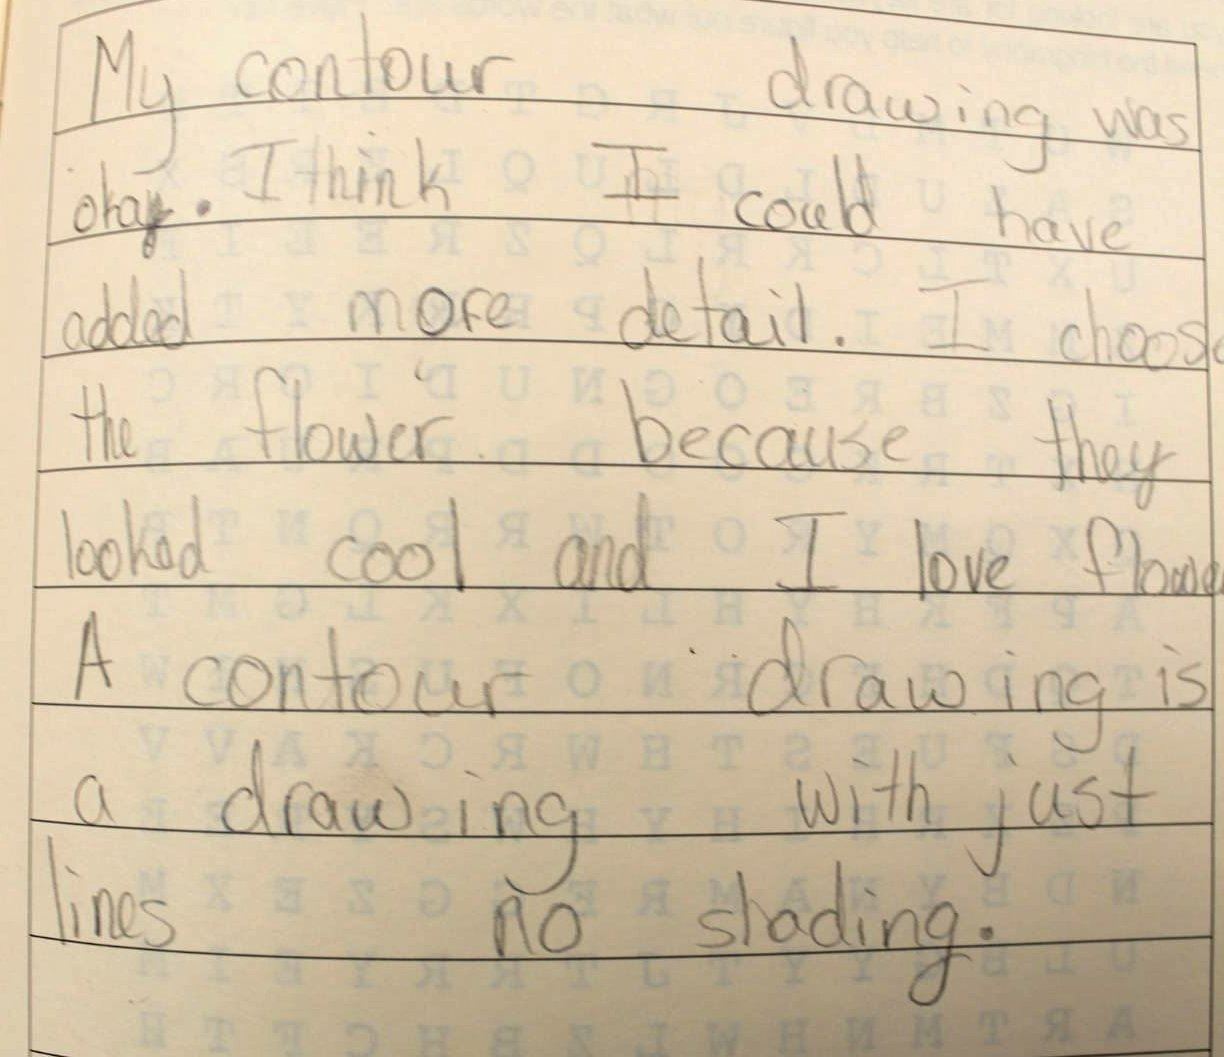 My contour drawing was
okay. I think I could have
added more detail. I choose
the flower because they
looked cool and I love flowe
A contour drawing is
a drawing with just
lines no shading.